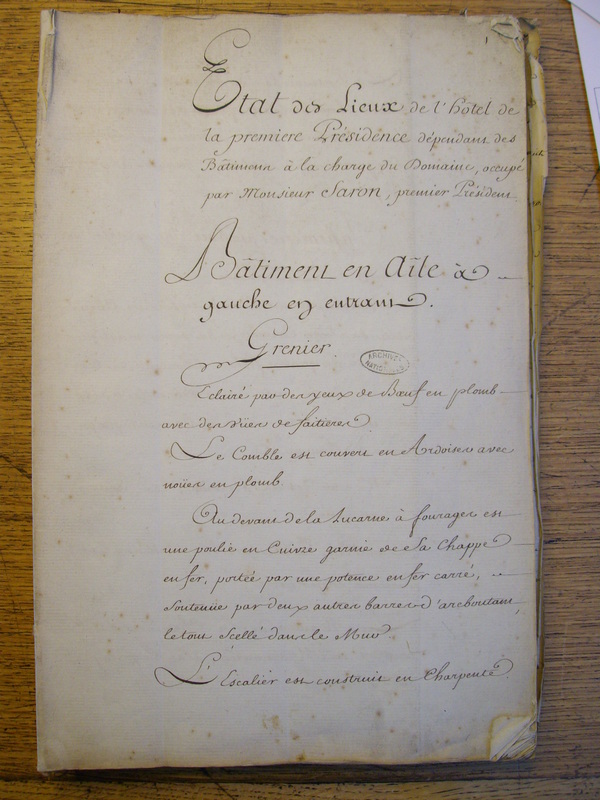 Etat des Lieux de l'hôtel de
la premiere Présidence dépendant des
Bâtimens à la charge du Domaine, occupé
par Monsieur Saron, premier Président.
Bâtiment en Aîle à
gauche en entrant.
Grenier.
ARCHIVES
NATIONALES
Eclairé par des yeux de Bœuf en plomb
avec des vües de faitieres.
Le Comble est couvert en Ardoises avec
noües en plomb.
Au devant de la Lucarne à fourages est
une poulie en Cuivre garnie de Sa Chappe
en fer, portée par une potence en fer carré,
Soutenüe par deux autres barres d'arcboutant,
le tout Scellé dans le Mur.
L'Escalier est construit en Charpente